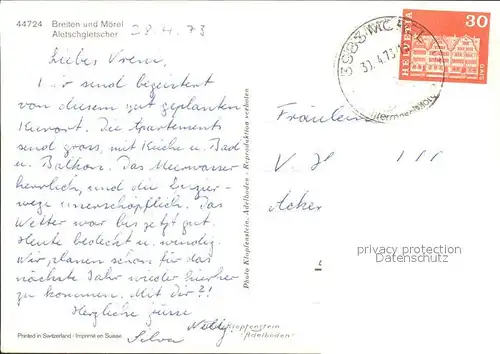 44724 Breiten und Mörel
Aletschgletscher
28.4.73
Liebes Vreni,
Wir sind begeistert
von diesem gut geplanten
Kurort. Die Apartements
sind gross, mit Küche u. Bad
u. Balkon. Das Meerwasser
herrlich, und die Spazier-
wege unerschöpflich. Das
Wetter war bis jetzt gut.
Heute bedeckt u. windig.
Wir planen schon für das
nächste Jahr wieder hierher
zu kommen. Mit Dir?!
Herzliche Grüsse
Nelly
Silva
Printed in Switzerland / Imprimé en Suisse
Photo Klopfenstein, Adelboden - Reproduktion verboten
Klopfenstein
"Adelboden"
3983 MÖREL
30.4.73
HELVETIA
30
GAIS
Fräulein
V. H
Acker
privacy protection
DO NOT COPY